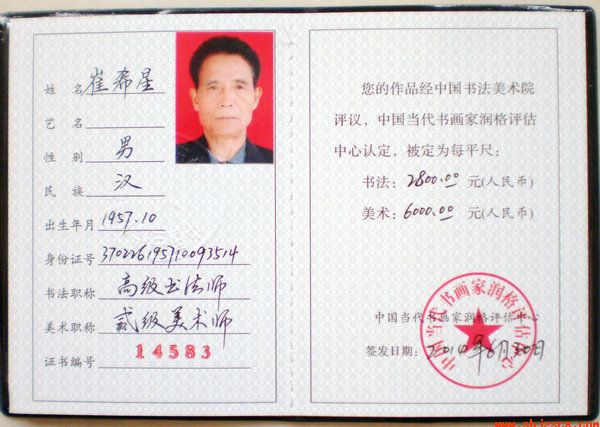 姓 名 崔希星
艺 名
性 别 男
民 族 汉
出生年月 1957.10
身份证号 370226195710093514
书法职称 高级书法师
美术职称 贰级美术师
证书编号 14583
您的作品经中国书法美术院
评议，中国当代书画家润格评估
中心认定，被定为每平尺：
书法：2800.00 元(人民币)
美术：6000.00 元(人民币)
中国当代书画家润格评估中心
签发日期：2014年6月30日
中国当代书画家润格评估中心